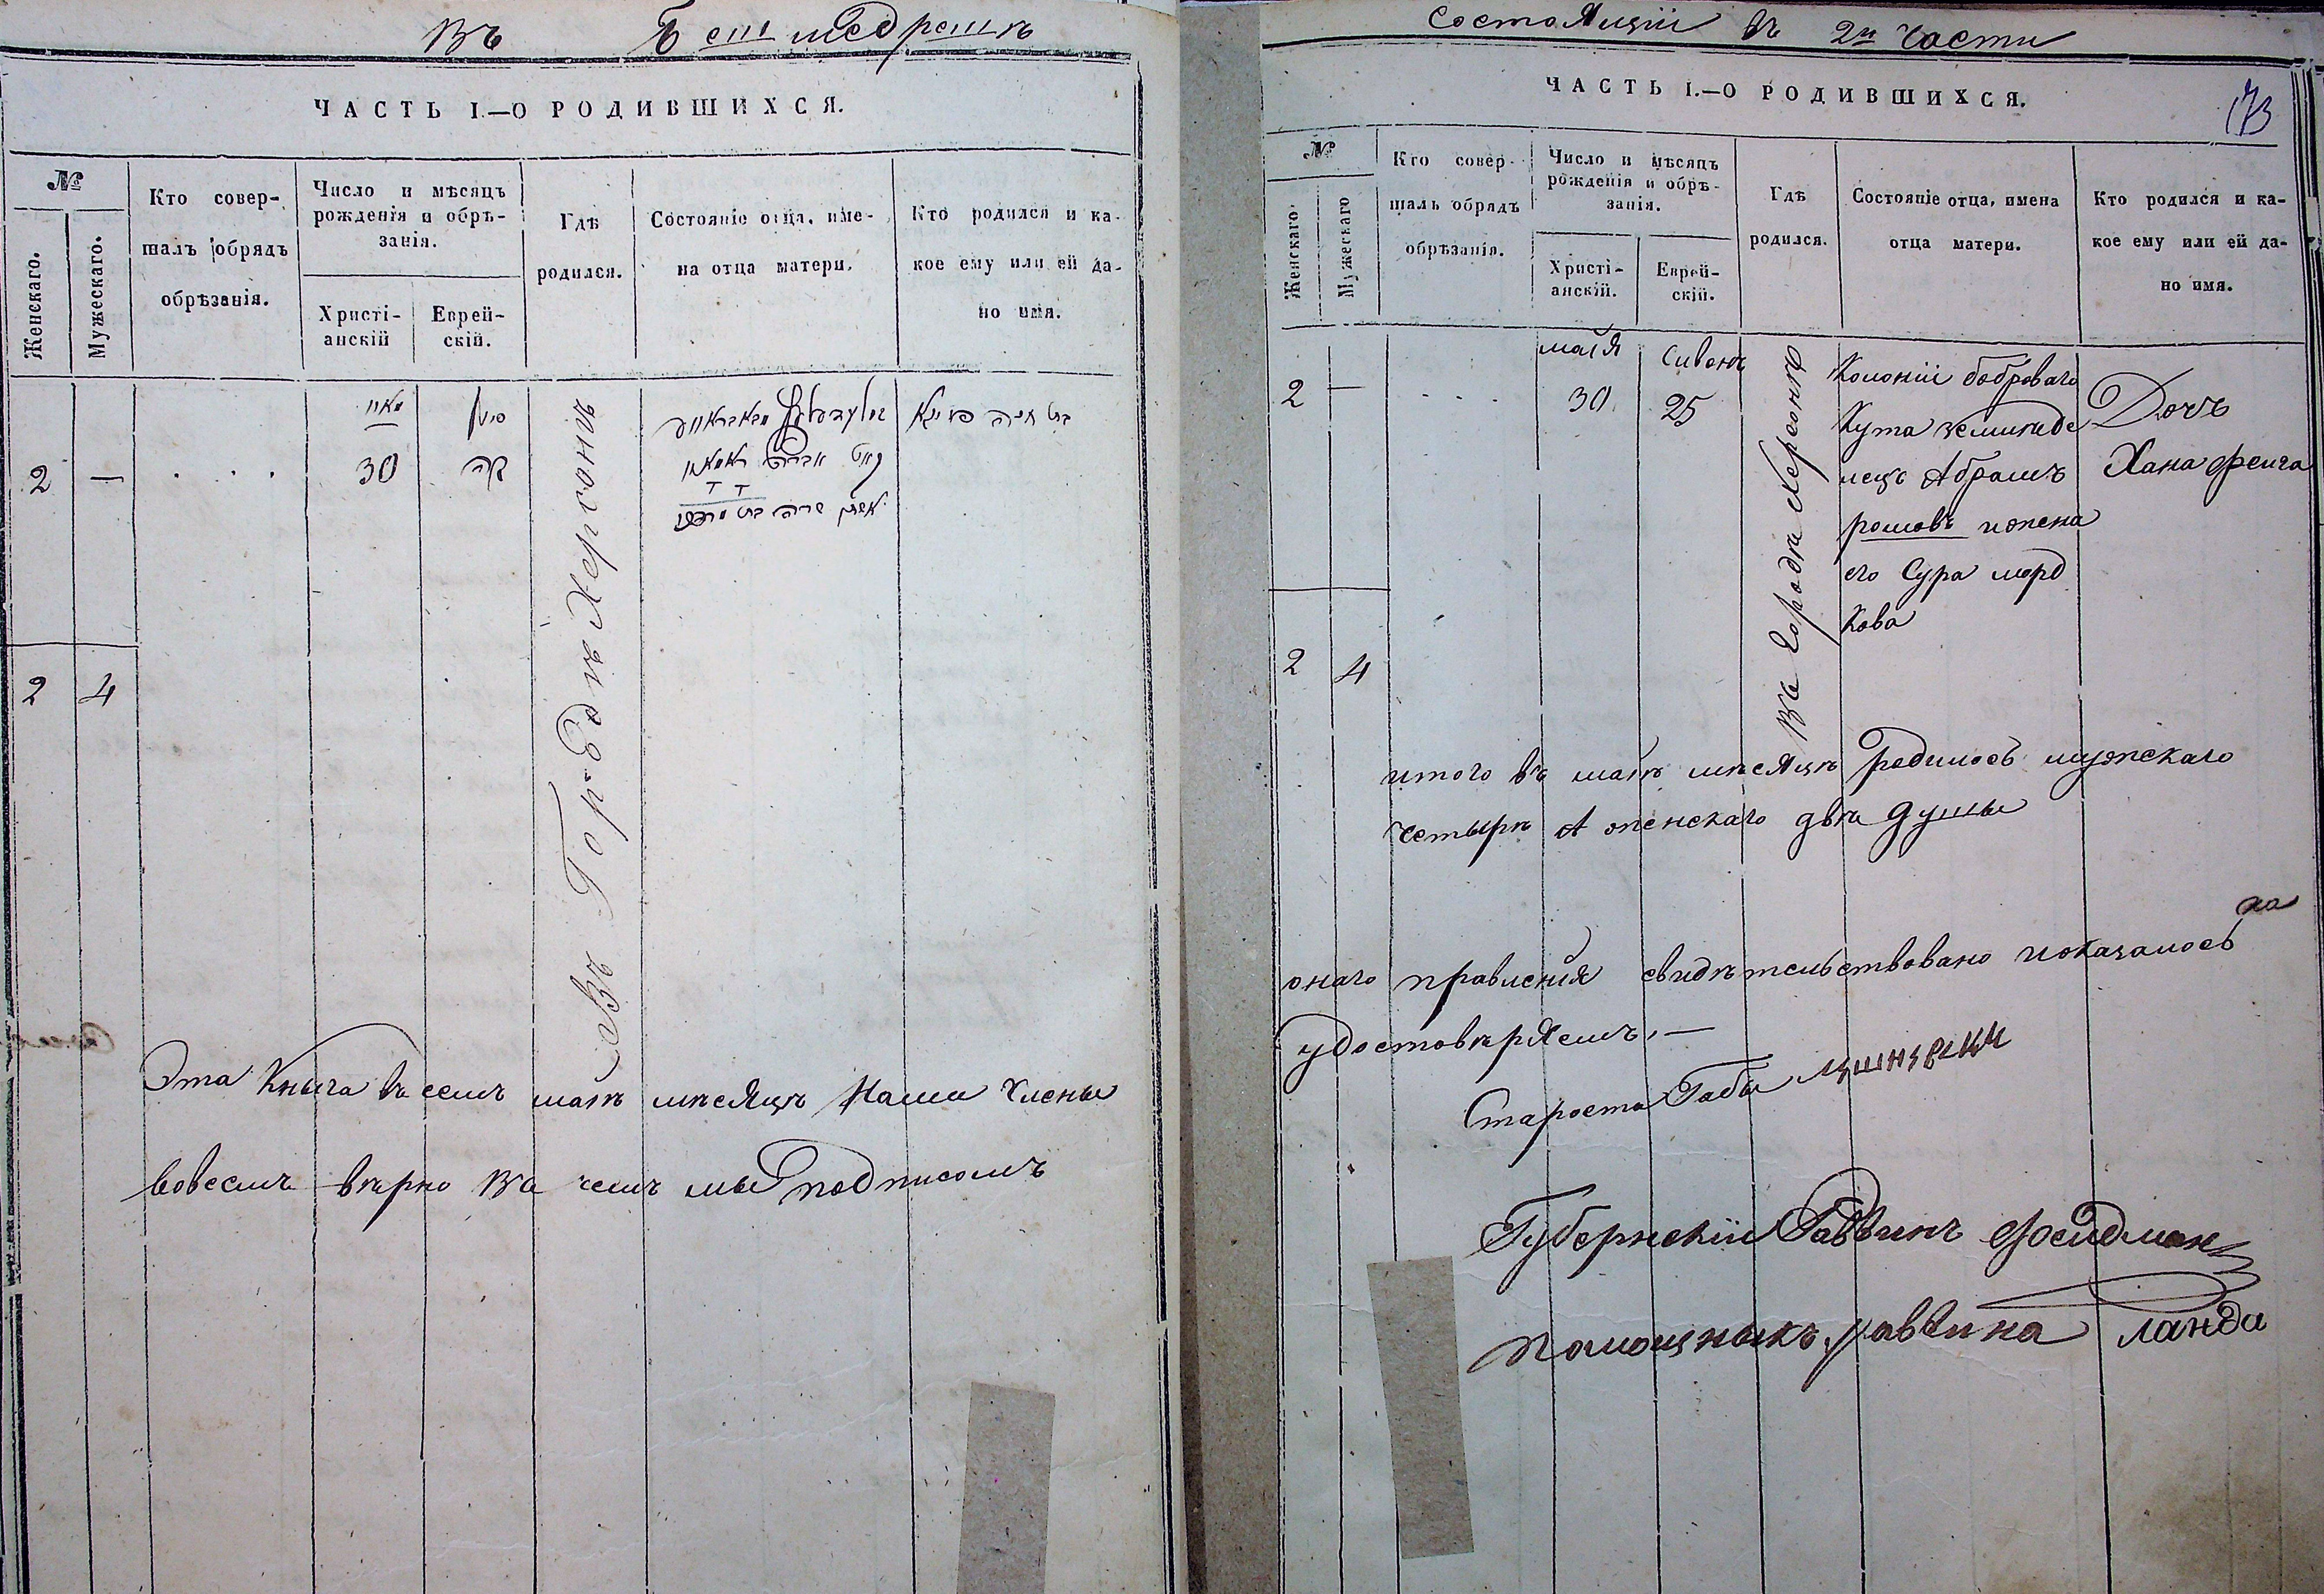 Въ Бешмедрешѣ
ЧАСТЬ I.—О РОДИВШИХСЯ.
№
Женскаго.
Мужескаго.
Кто совер-
шалъ обрядъ
обрѣзанія.
Число и мѣсяцъ
рожденія и обрѣ-
занія.
Христі-
анскій
Еврей-
скій.
Гдѣ
родился.
Состояніе отца, име-
на отца матери.
Кто родился и ка-
кое ему или ей да-
но имя.
2 —
. . .
מאי
30
סיון
כה
Въ Городѣ Херсонѣ
2 4
Эта Кныга въ семъ маѣ мѣсяцѣ Нами Члены
вовсемъ вѣрно Въ чемъ мы подписомъ
Состоящій въ 2й Части
ЧАСТЬ I.—О РОДИВШИХСЯ.
173
№
Женскаго.
Мужескаго
Кто совер-
шалъ обрядъ
обрѣзанія.
Число и мѣсяцъ
рожденія и обрѣ-
занія.
Христі-
анскій.
Еврей-
скій.
Гдѣ
родился.
Состояніе отца, имена
отца матери.
Кто родился и ка-
кое ему или ей да-
но имя.
2 —
. . . .
майя
30
Сивонъ
25
Въ Городѣ Херсонѣ
Колоніи боброваго
Кута земликде
лецъ Абрамъ
ромовъ ижена
его Сура морд
Кова
Дочъ
Хана фейга
2 4
итого въ маѣ мѣсяцѣ родилосъ мужскаго
Четырѣ А женскаго двѣ душы
на
онаго правления свидѣтельствовано иоказалосъ
удостовѣряемъ, —
Староста Габы
Губернскіи Раввинъ Фейдман
Помощныкъ раввина Ланда